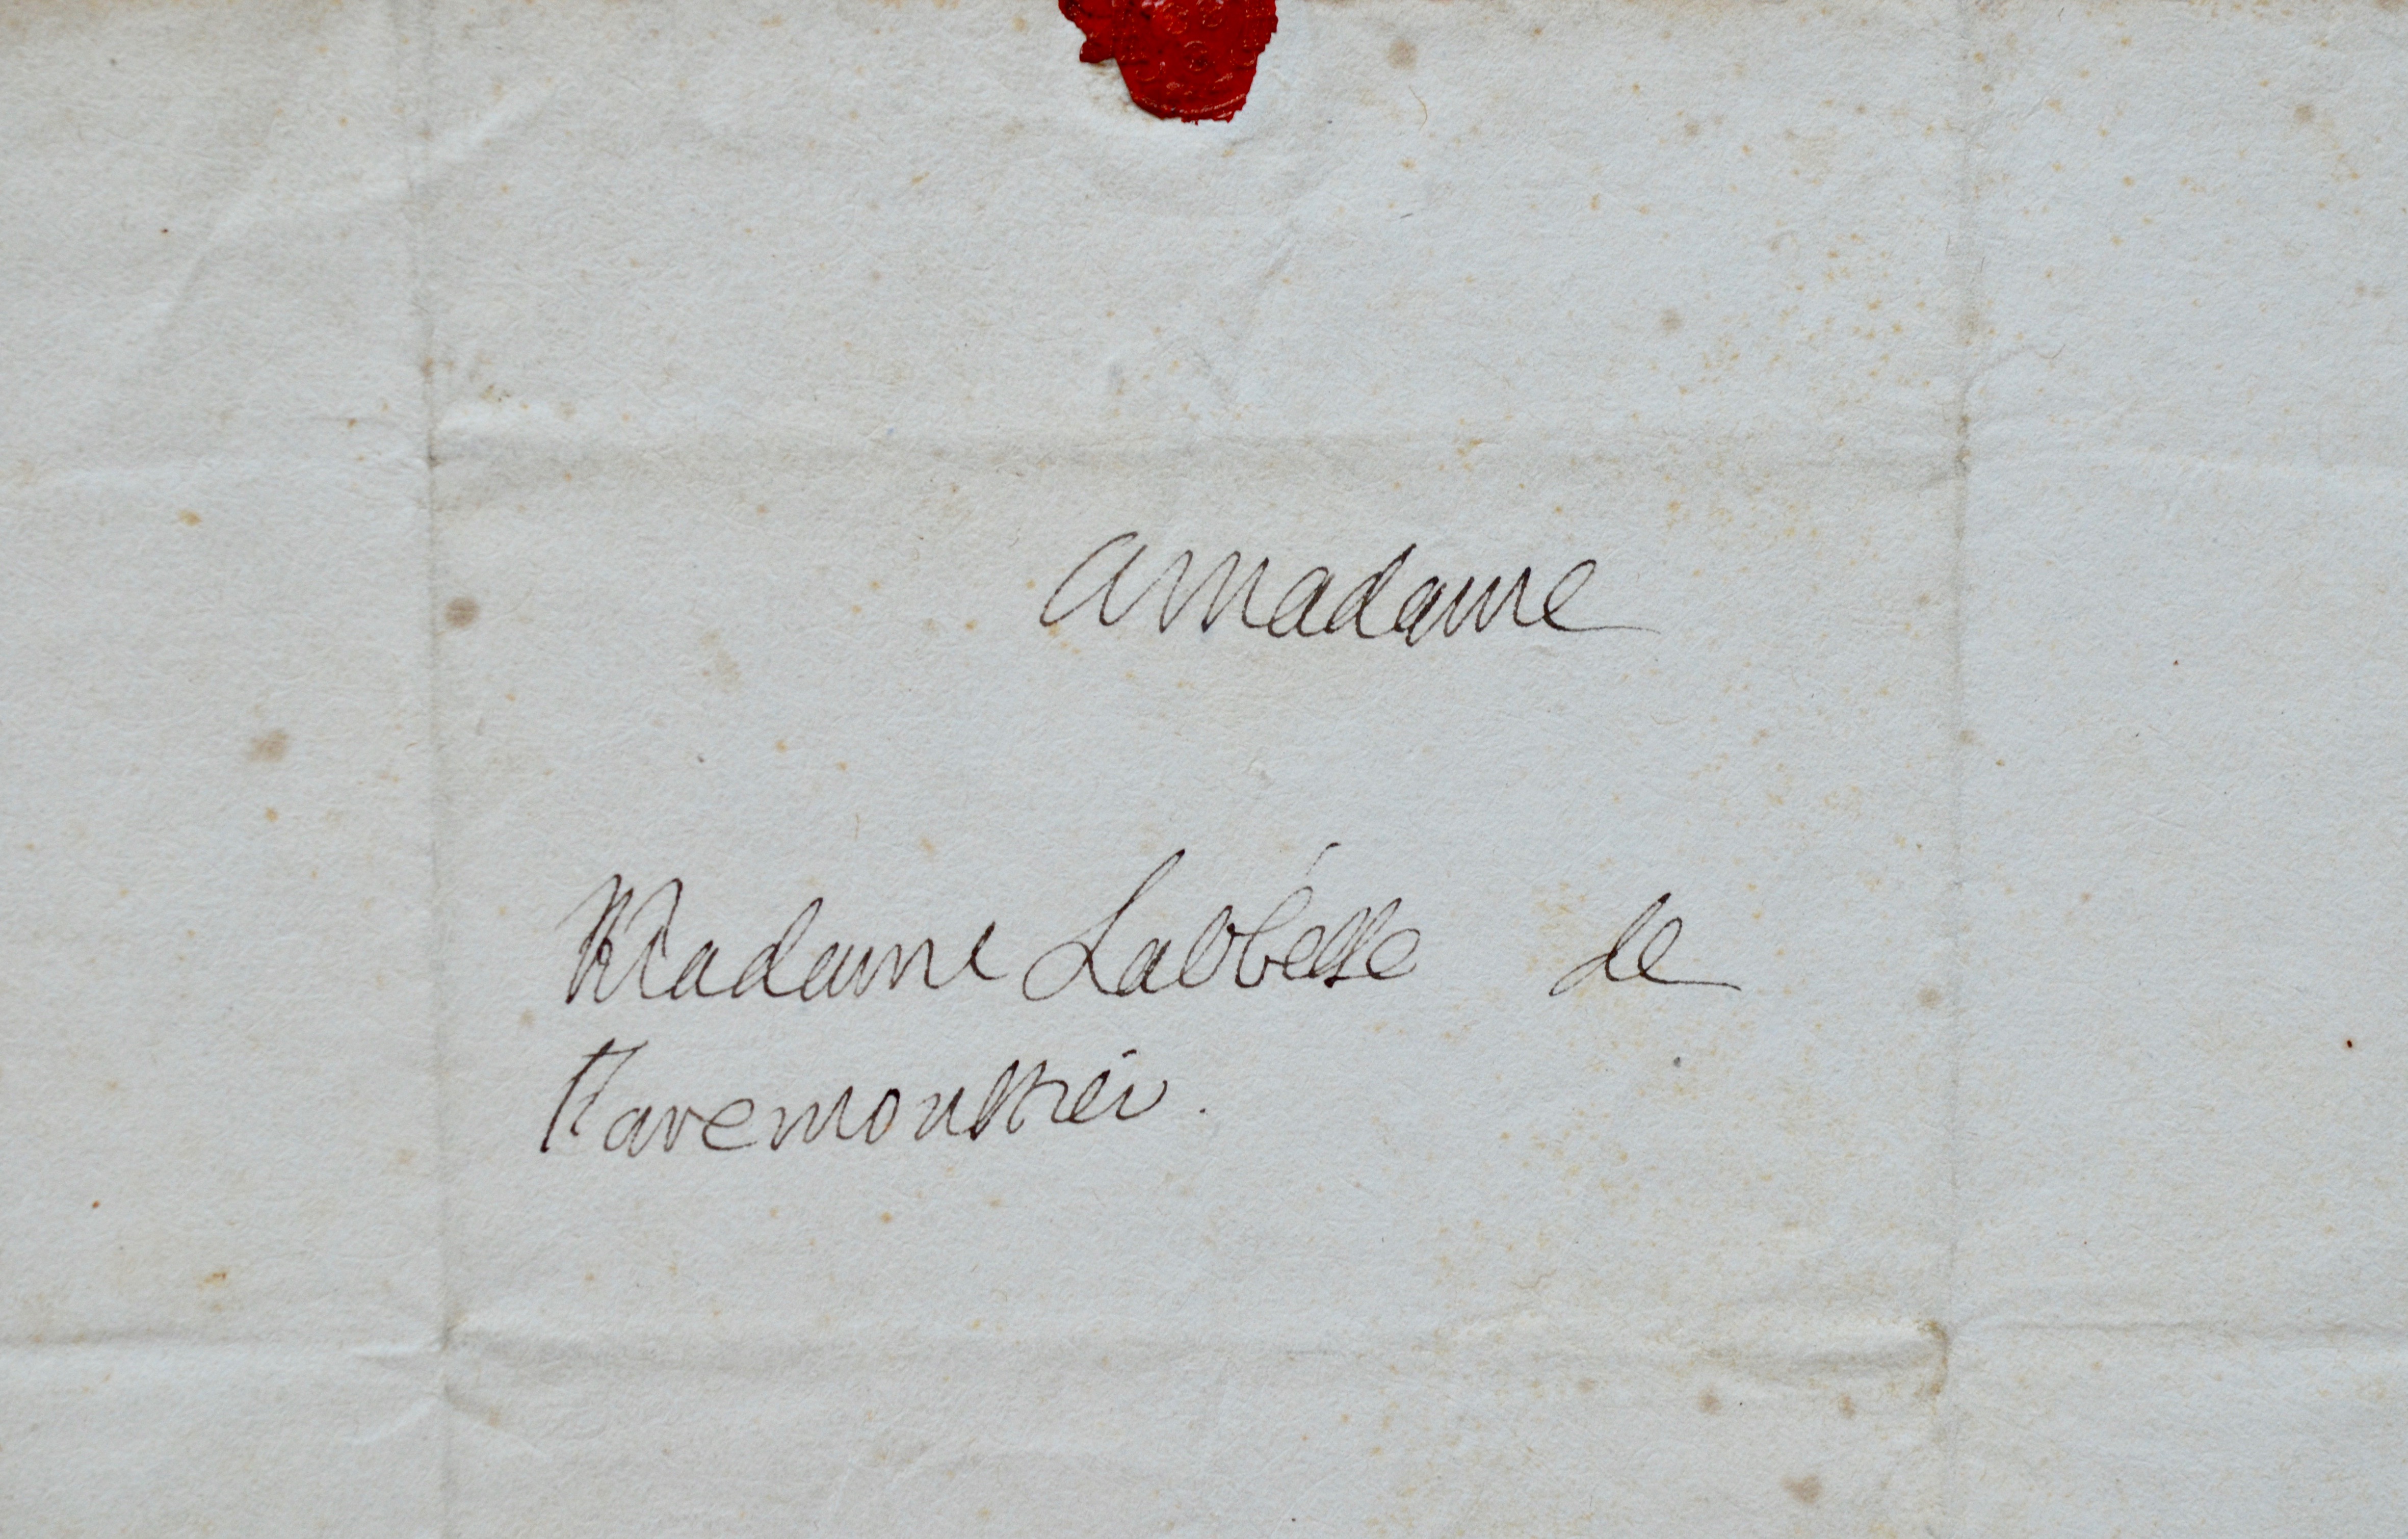 a madame
Madame Labbésse de
Faremoustier.